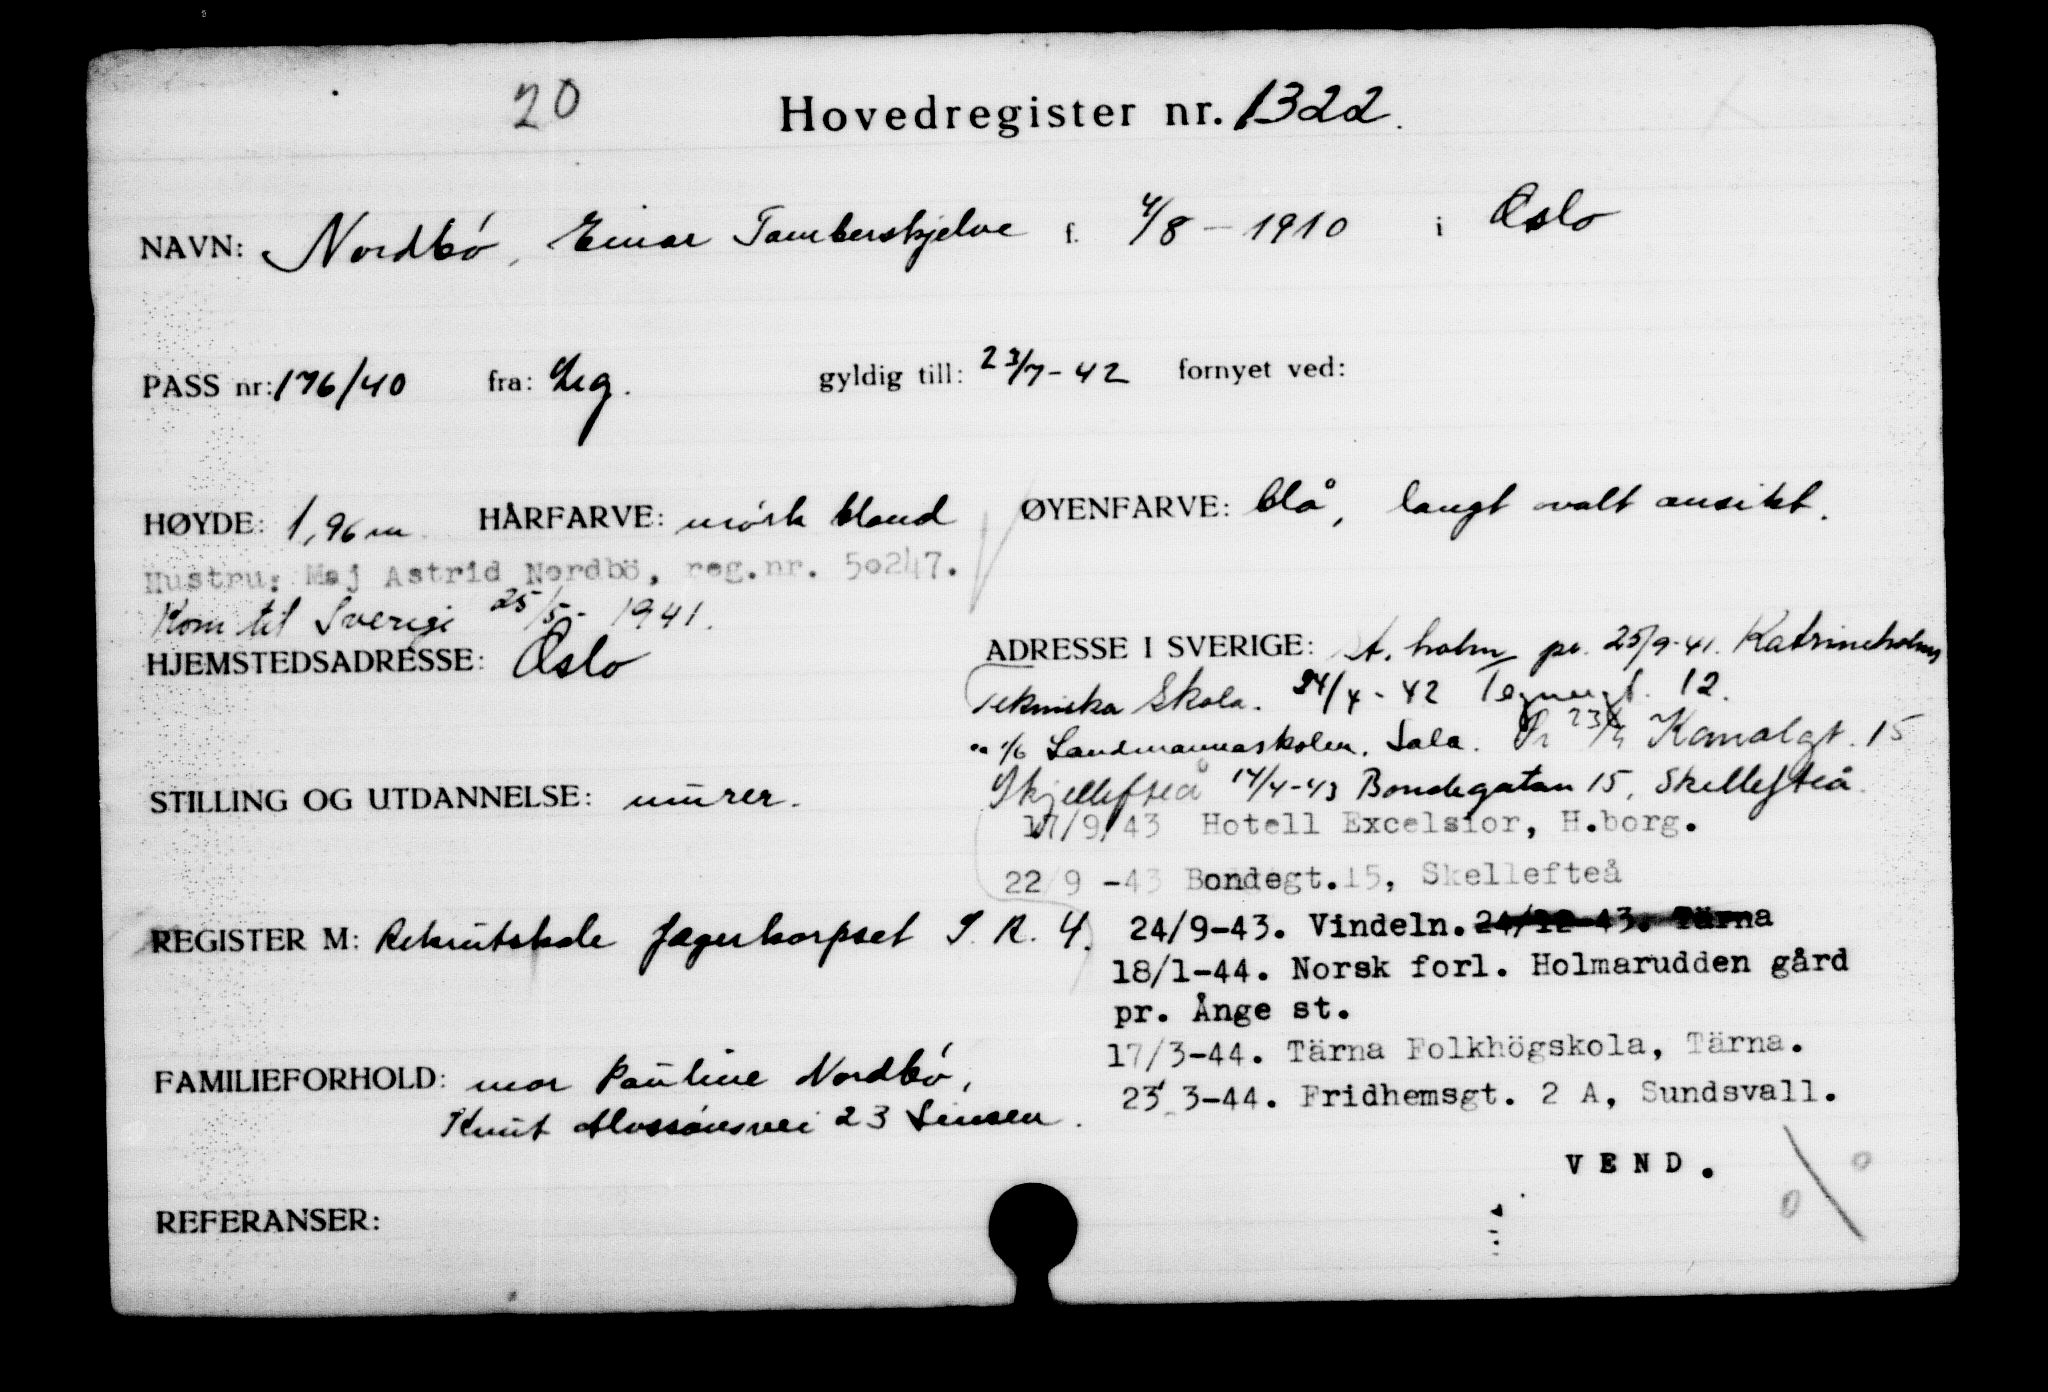 20
Hovedregister nr. 1322.
NAVN: Nordbö, Einar Tamberskjelve f. 4/8 - 1910 i Oslo
PASS nr: 176/40 fra: Leg. gyldig till: 23/7-42 fornyet ved:
HØYDE: 1,96 m HÅRFARVE: mörk blond ØYENFARVE: blå, langt ovalt ansikt.
Hustru: Maj Astrid Nordbö, reg.nr. 50247.
Kom til Sverige 25/5- 1941.
HJEMSTEDSADRESSE: Oslo
ADRESSE I SVERIGE: St. holm pr. 25/9-41. Katrineholms
Tekniska Skola. 24/4-42 12.
1/6 Landmannaskolen, Sala. Kanalgt. 15
Skjellefteå 14/4-43 Bondegatan 15, Skellefteå.
17/9 43 Hotell Excelsior, H.borg.
22/9 -43 Bondegt.15, Skellefteå
24/9-43. Vindeln. 24/12-43. Tärna
18/1-44. Norsk forl. Holmarudden gård
pr. Ånge st.
17/3-44. Tärna Folkhögskola, Tärna.
23 3-44. Fridhemsgt. 2 A, Sundsvall.
VEND.
STILLING OG UTDANNELSE: murer.
REGISTER M: Rekrutskole Jegerkorpset S. R. 4.
FAMILIEFORHOLD: mor Pauline Nordbö,
Knut 23 Sinsen.
REFERANSER: